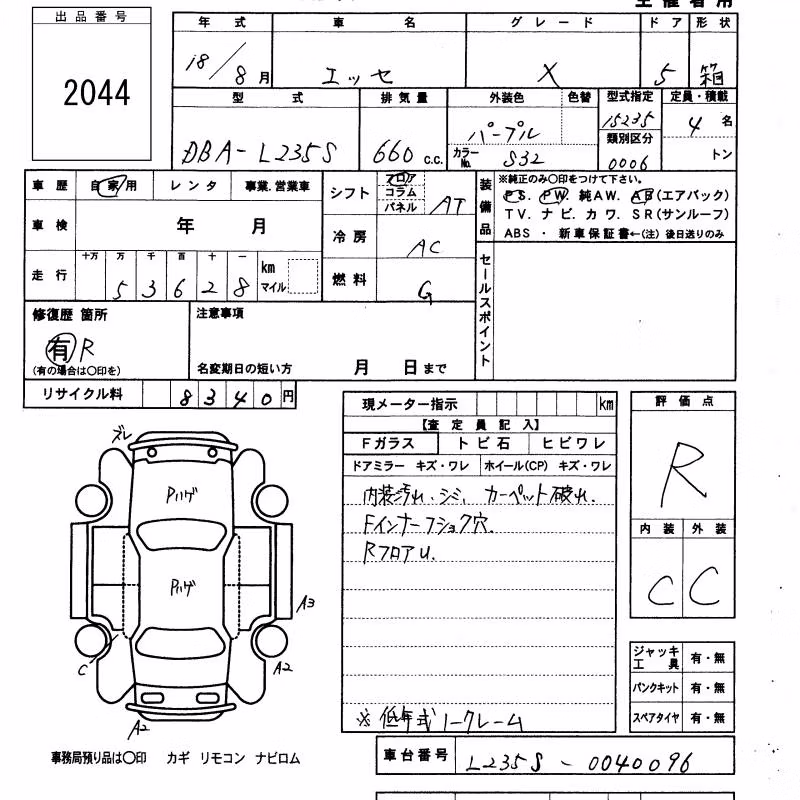 出品番号
2044
年 式 車 名 グレード ドア 形状
18/8月 エッセ X 5 箱
型 式 排気量 外装色 色替 型式指定 定員・積載
DBA-L235S 660 C.C. パープル 15235 4 名
カラーNo. S32 類別区分 0006 トン
車歴 自家用 レンタ 事業.営業車
シフト フロア コラム パネル AT
装備品 ※純正のみ○印をつけて下さい。
PS. PW. 純AW. AB(エアバック)
TV. ナビ. カワ. SR(サンルーフ)
ABS ・ 新車保証書←(注) 後日送りのみ
車検 年 月
冷房 AC
走行 十万 万 千 百 十 一 km マイル
5 3 6 2 8
燃料 G
セールスポイント
修復歴 箇所 注意事項
有 R
(有の場合は○印を) 名変期日の短い方 月 日まで
リサイクル料 8 3 4 0 円
現メーター指示 km
【査定員記入】
Fガラス トビ石 ヒビワレ
ドアミラー キズ・ワレ ホイール(CP) キズ・ワレ
内装汚れ、シミ、カーペット破れ.
Fインナーフショク穴.
RフロアU.
※低年式ノークレーム
評価点
R
内装 外装
C C
ズレ
Pハゲ
Pハゲ
A3
C
A2
A2
ジャッキ工具 有・無
パンクキット 有・無
スペアタイヤ 有・無
事務局預り品は○印 カギ リモコン ナビロム
車台番号 L235S - 0040096